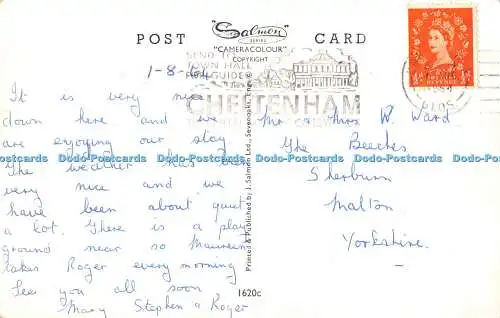 POST CARD
"Salmon"
SERIES
"CAMERACOLOUR"
COPYRIGHT
SEND TO
TOWN HALL
FOR GUIDE
CHELTENHAM
1-8-64
It is very nice
down here and we
are enjoying our stay
The weather has been
very nice and we
have been about quiet
a lot. There is a play
ground near so Maureen
takes Roger every morning
See you all soon
Mary Stephen & Roger
Mr Mrs R. Ward
The Beeches
Sherburn
Malton
Yorkshire.
Printed & Published by J. Salmon Ltd., Sevenoaks, Eng.
1620c
Dodo-Postcards Dodo-Postcards Dodo-Postcards Dodo-Postcards Dodo-Postcards Dodo-Postcards Dodo-Postcards